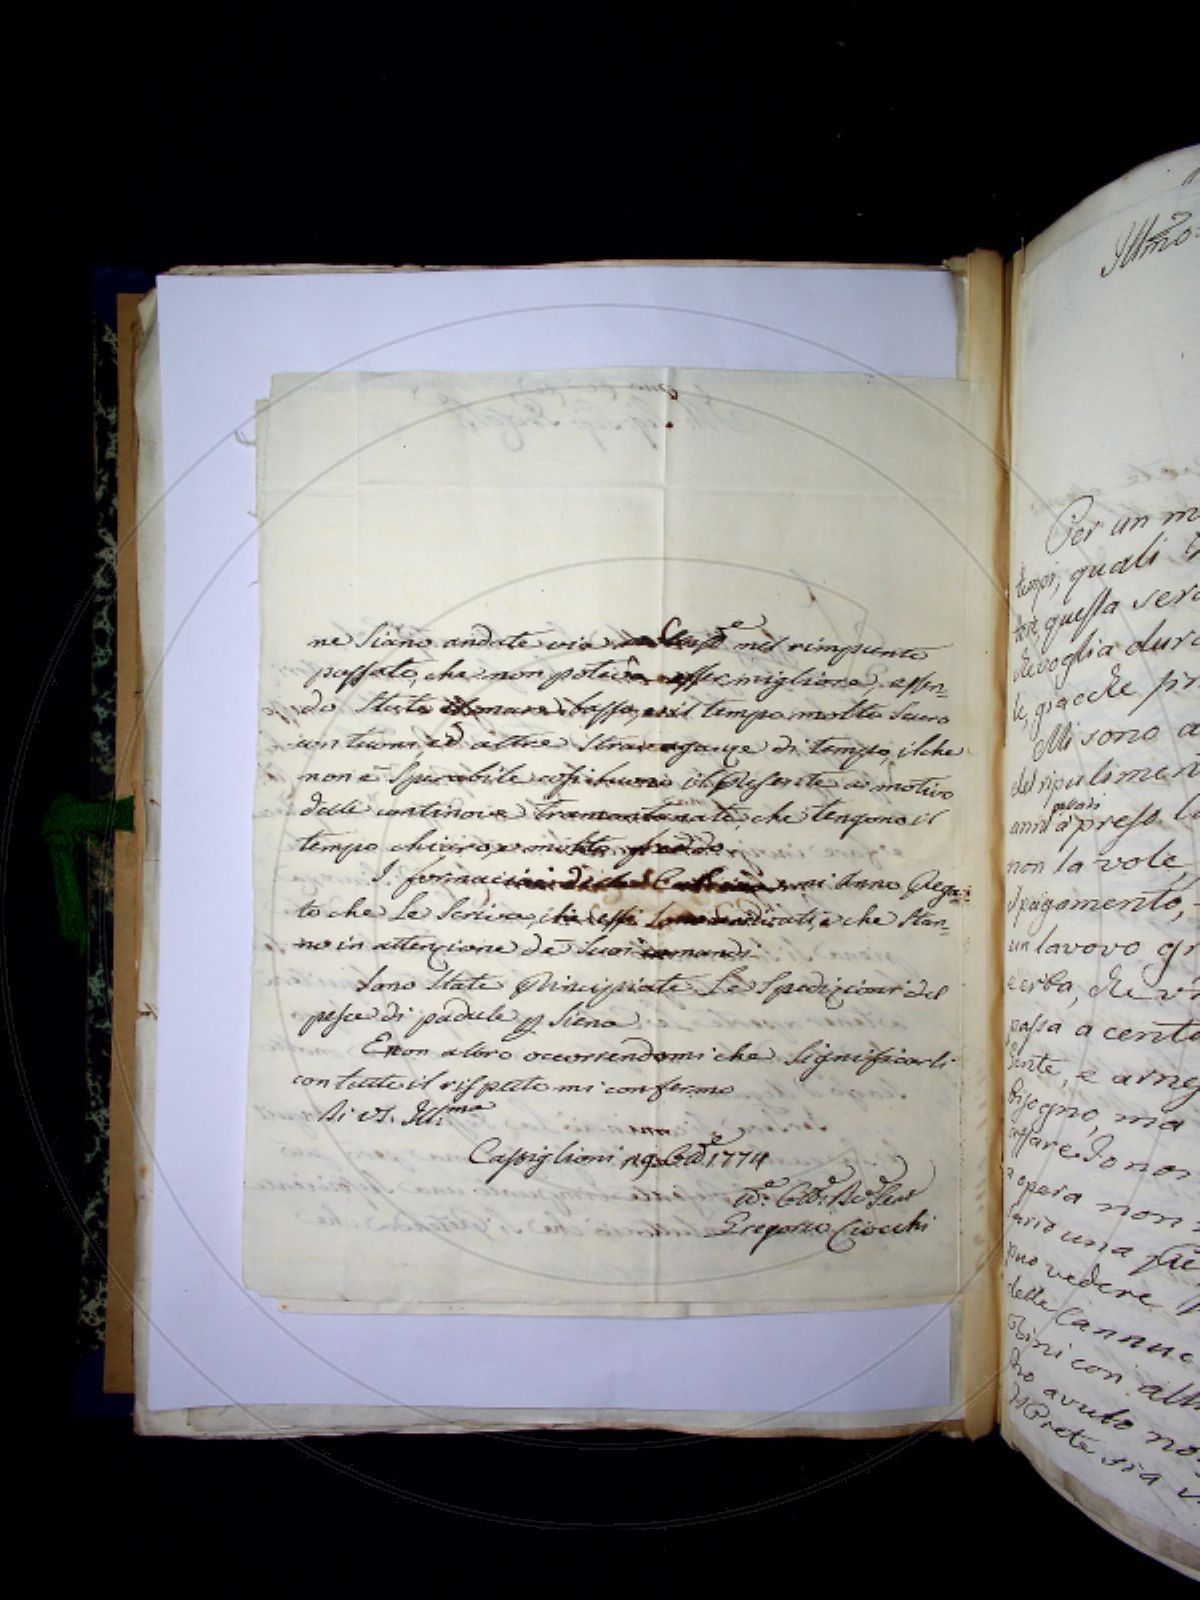 ne Siano andate via nel rimpiento
passato, che non poteva esser migliore, essen-
do stato il mare basso, e il tempo molto Scuro
con tuoni ed altre stravaganze di tempo, il che
non è Sperabile cossi buono il presente a motivo
delle continove tramontanate, che tengono il
tempo chiaro, e molto freddo
I fornaciai di mi anno Prega-
to che Le Scriva, che essi sono arrivati, e che stan-
no in attenzione de Suoi comandi
Sono State Principiate Le Spedizioni del
pesce di padule p Siena
E non altro occorrendomi che Significarli
con tutto il rispetto mi confermo
Di VS. Ill.ma
Castiglioni 19 1774
Gregorio Ciocchi
Illmo:
Per un m
tempi, quali
tore, questa sera
voglia dura
le, giacche pr
Mi sono a
del ripulimen
passati
anni apreso la
non la vole,
il pagamento,
un lavovo gr
e erba, che vi
passa a cento
Gente, e arnes
bisogno, ma
affare. Io non
opera non
una
puo vedere
delle Cannuc
con altr
avuto no
Prete sia